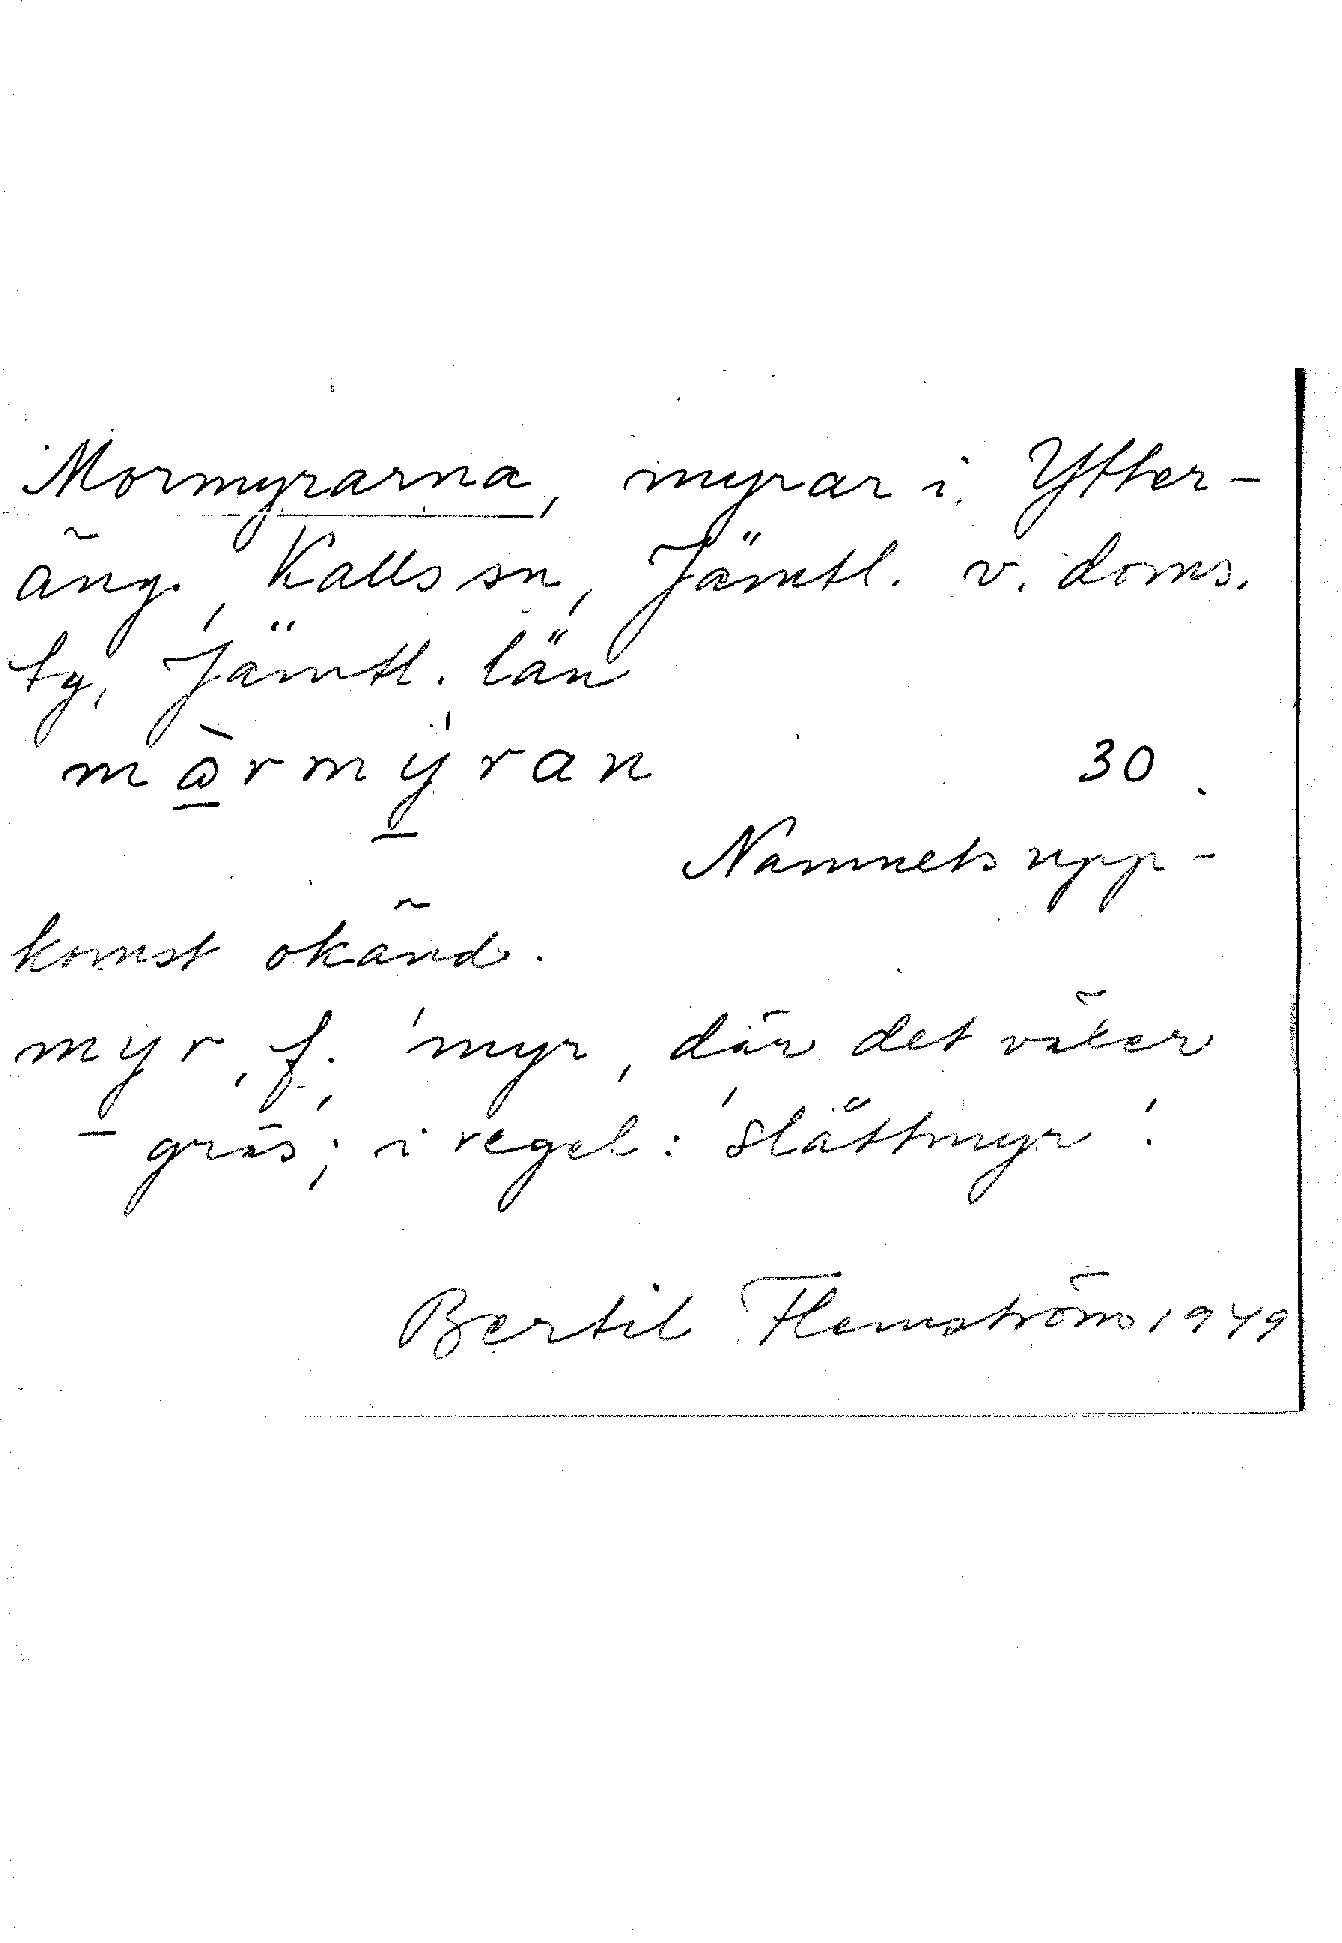 Mormyrarna, myrar i Ytter-
äng, Kalls sn, Jämtl. v. doms.
tg, Jämtl. län
mòrmýran 30.
Namnets upp-
komst okänd.
myr, f. 'myr, där det växer
gräs; i regel: 'slåttmyr'.
Bertil Flemström 1949